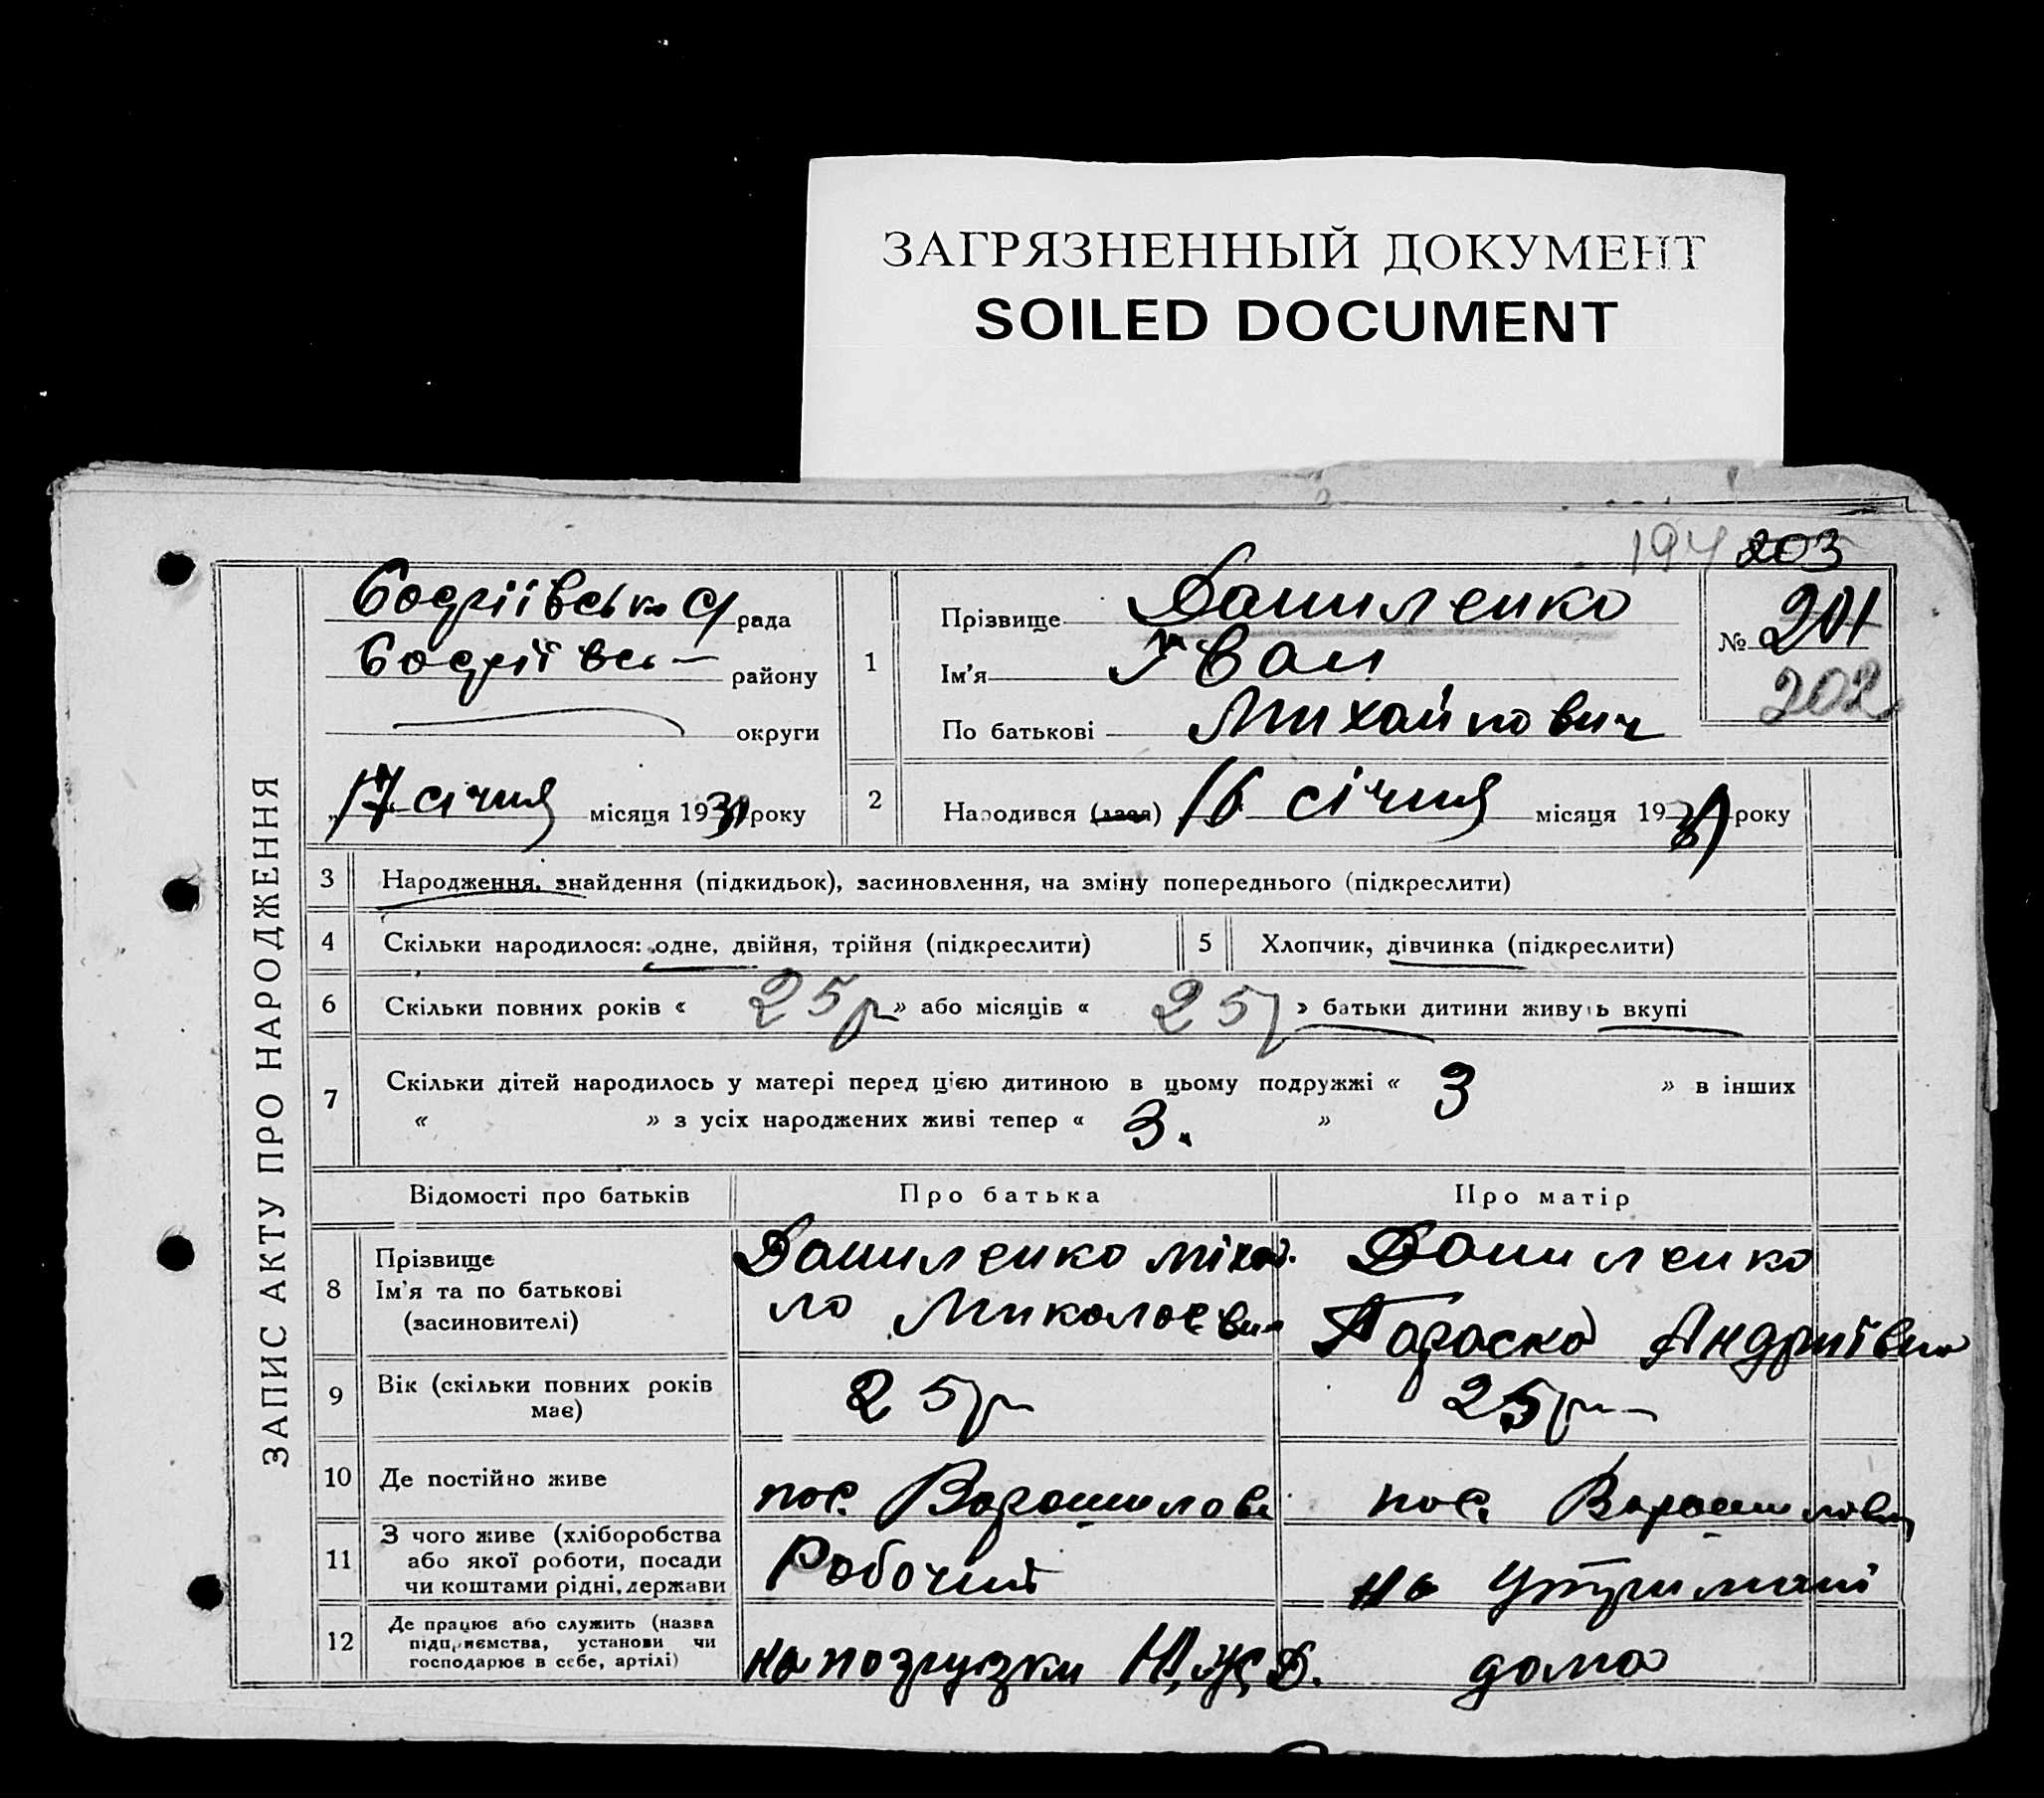 ЗАГРЯЗНЕННЫЙ ДОКУМЕНТ
SOILED DOCUMENT
194 203
ЗАПИС АКТУ ПРО НАРОДЖЕННЯ
рада
району
округи
17 січня місяця 1931 року
1
Прізвище Даниленко
Ім'я Іван
По батькові Михайлович
№ 201
202
2 Народився (лася) 16 січня місяця 1931 року
3 Народження, знайдення (підкидьок), засиновлення, на зміну попереднього (підкреслити)
4 Скільки народилося: одне, двійня, трійня (підкреслити) 5 Хлопчик, дівчинка (підкреслити)
6 Скільки повних років « 25 р » або місяців « 25 р » батьки дитини живуть вкупі
7 Скільки дітей народилось у матері перед цією дитиною в цьому подружжі « 3 » в інших
« » з усіх народжених живі тепер « 3. »
Відомості про батьків Про батька Про матір
8 Прізвище
Ім'я та по батькові
(засиновителі)
Даниленко Міхай
ло Миколаєвич
Даниленко
Параска Андриївна
9 Вік (скільки повних років
має)
25 р
25 р
10 Де постійно живе
пос. Ворошилова
пос. Ворошилова
11 З чого живе (хліборобства
або якої роботи, посади
чи коштами рідні, держави
Робочий
на утримані
12 Де працює або служить (назва
підприємства, установи чи
господарює в себе, артілі)
на погрузки
дома